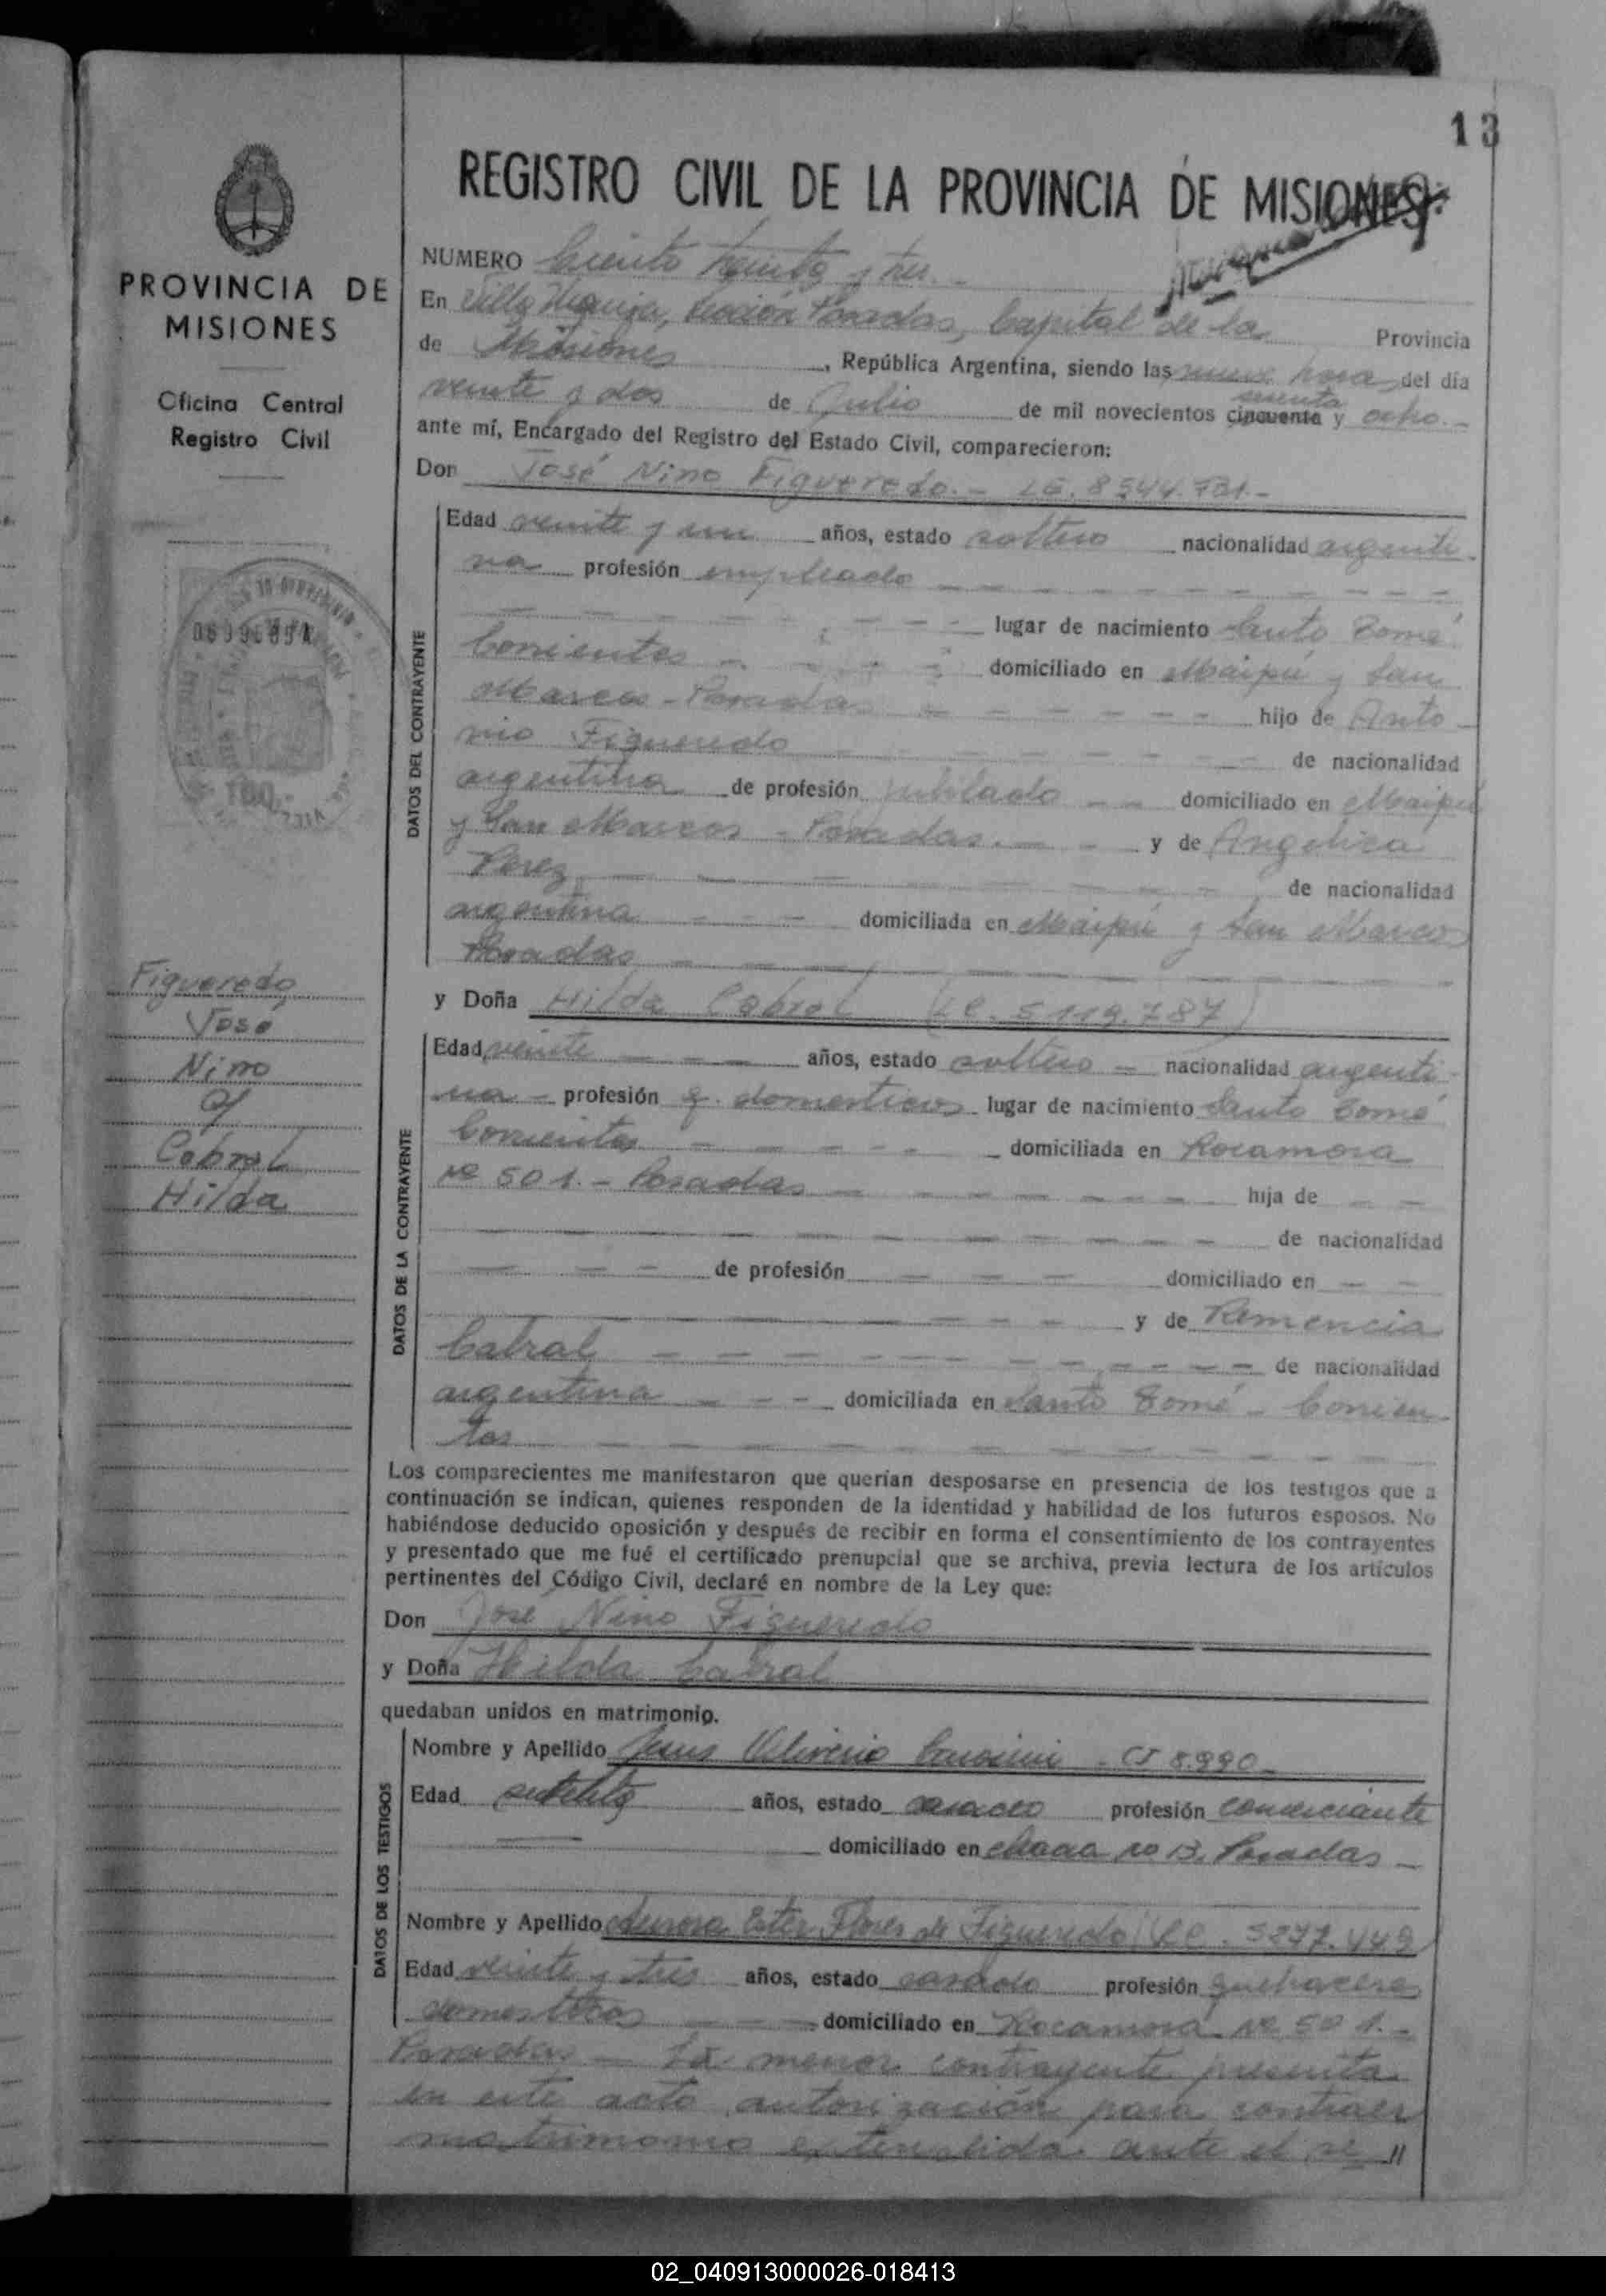 13
REGISTRO CIVIL DE LA PROVINCIA DE MISIONES
PROVINCIA DE
MISIONES
Oficina Central
Registro Civil
NUMERO Ciento treinta y tres.-
En Villa Urquiza, Sección Posadas, Capital de la Provincia
de Misiones, República Argentina, siendo las nueve horas del día
veinte y dos de Julio de mil novecientos cincuenta sesenta y ocho.-
ante mí, Encargado del Registro del Estado Civil, comparecieron:
Don José Nino Figueredo.- LE. 8544.731.-
Edad veinte y un años, estado soltero nacionalidad argenti-
na profesión empleado
lugar de nacimiento Santo Tomé
Corrientes domiciliado en Maipú y San
Marcos - Posadas hijo de Anto-
nio Figueredo de nacionalidad
argentina de profesión jubilado domiciliado en Maipú
y San Marcos - Posadas. y de Angelica
Perez de nacionalidad
argentina domiciliada en Maipú y San Marcos
Posadas
y Doña Hilda Cabral (LC. 5119.787)
DATOS DEL CONTRAYENTE
Figueredo
José
Nino
c/
Cabral
Hilda
Edad veinte años, estado soltera nacionalidad argenti-
na - profesión q. domesticos lugar de nacimiento Santo Tomé
Corrientes domiciliada en Rocamora
Nº 501.- Posadas hija de
de nacionalidad
de profesión domiciliado en
y de Remencia
Cabral de nacionalidad
argentina domiciliada en Santo Tomé - Corrien-
tes
DATOS DE LA CONTRAYENTE
Los comparecientes me manifestaron que querían desposarse en presencia de los testigos que a
continuación se indican, quienes responden de la identidad y habilidad de los futuros esposos. No
habiéndose deducido oposición y después de recibir en forma el consentimiento de los contrayentes
y presentado que me fué el certificado prenupcial que se archiva, previa lectura de los artículos
pertinentes del Código Civil, declaré en nombre de la Ley que:
Don José Nino Figueredo
y Doña Hilda Cabral
quedaban unidos en matrimonio.
Nombre y Apellido Jesus - CI 8.990-
Edad años, estado casado profesión comerciante
domiciliado en Posadas -
Nombre y Apellido Aurora Ester Flores de Figueredo (LC. 5277.449
Edad veinte y tres años, estado casada profesión quehaceres
domesticos domiciliado en Rocamora Nº 501.-
Posadas - La menor contrayente presenta
en este acto autorización para contraer
matrimonio extendida ante el se //
DATOS DE LOS TESTIGOS
02_040913000026-018413